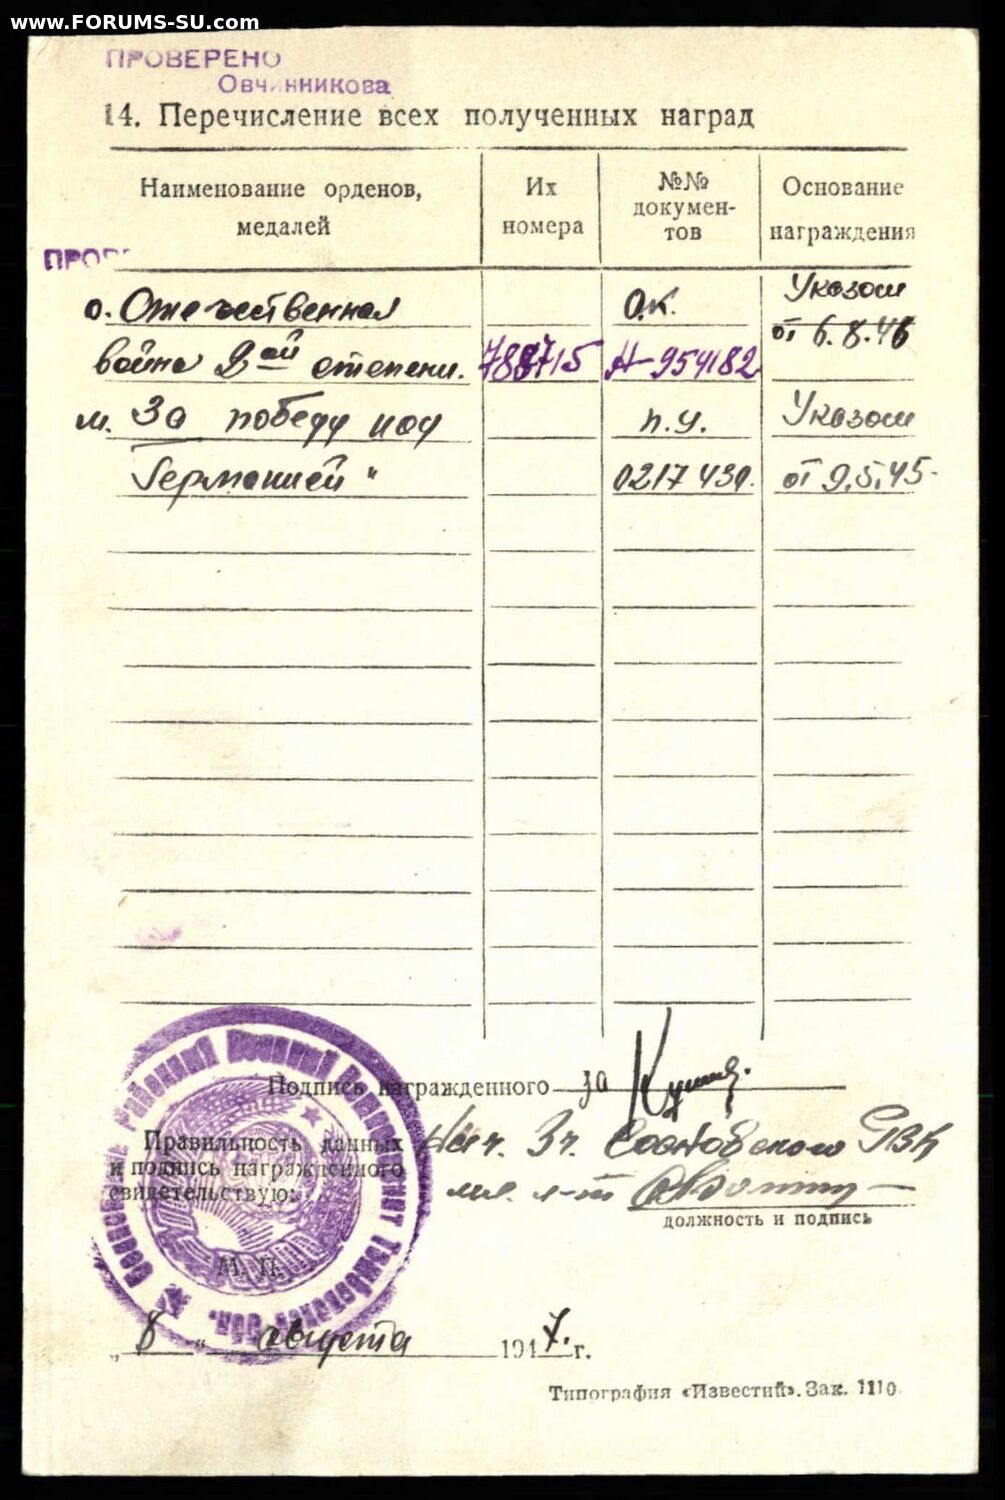 www.FORUMS-SU.com
ПРОВЕРЕНО
Овчинникова
14. Перечисление всех полученных наград
Наименование орденов, медалей
Их номера
№№ докумен-
тов
Основание награждения
о. Отечественная
О.К.
Указом
от 6.8.46
война 2ой степени.
788715
Н-954182
м. За победу над
п.у.
Указом
Германией"
0217430.
от 9.5.45-
Подпись награжденного за
Правильность данных
и подпись награжденного
свидетельствую:
Нач. 3ч. Сосновского РВК
мл. л-т
должность и подпись
М. П.
„8" августа 1947. г.
Типография «Известий». Зак. 1110.